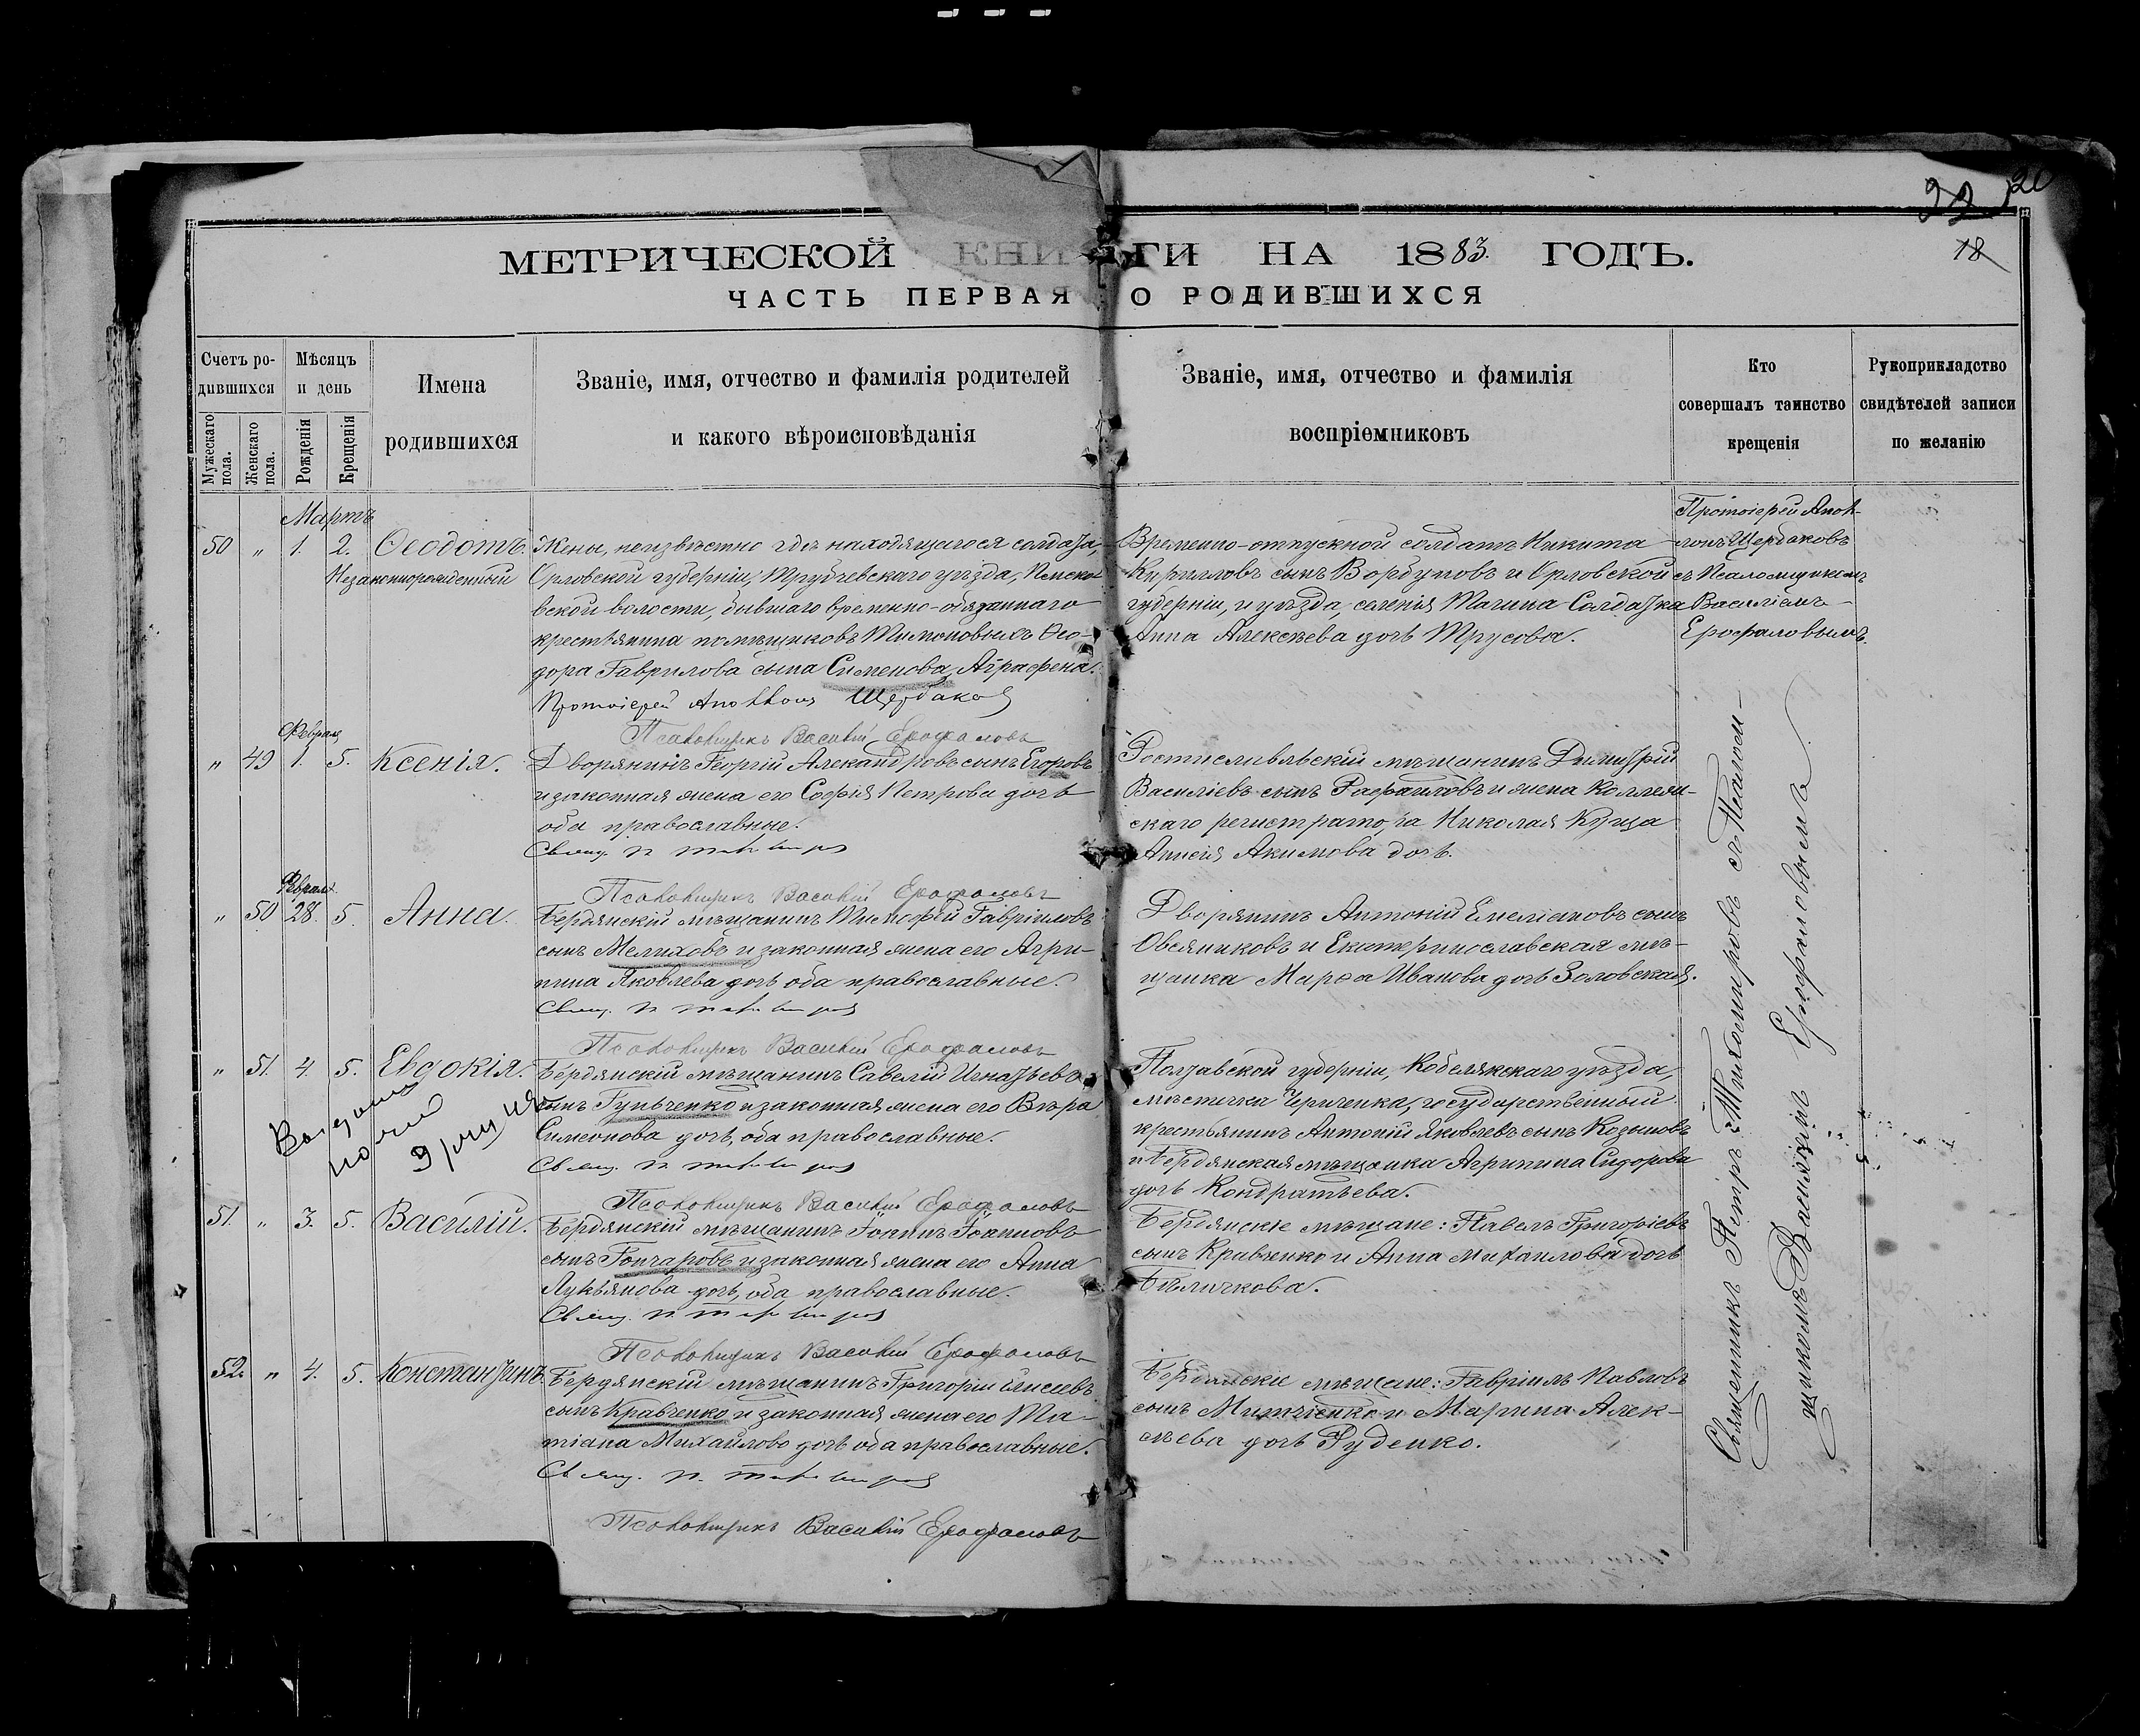 22 20
18
МЕТРИЧЕСКОЙ КНИГИ НА 1883. ГОДЪ.
ЧАСТЬ ПЕРВАЯ О РОДИВШИХСЯ
Счетъ ро-
дившихся
Мужескаго пола.
Женскаго пола.
Мѣсяцъ
и день
Рожденія
Крещенія
Имена
родившихся
Званіе, имя, отчество и фамилія родителей
и какого вѣроисповѣданія
Званіе, имя, отчество и фамилія
воспріемниковъ
Кто
совершалъ таинство
крещенія
Рукоприкладство
свидѣтелей записи
по желанію
Мартъ
50 " 1. 2. Ѳеодотъ.
Незаконнорожденный
Жены, неизвѣстно гдѣ находящагося солдата,
Орловской губерніи, Трубчевскаго уѣзда,
вской волости, бывшаго временно-обязаннаго
крестьянина помѣщиковъ Тимоновыхъ Ѳео-
дора Гаврилова сына Сименова, Аграфена.
Протоіерей Аполлонъ Щербаковъ
Псаломщикъ Василій Ерофаловъ
Временно-отпускной солдатъ Никита
Кирилловъ сынъ Ворбуновъ и Орловской
губерніи, и уѣзда, селенія Солдатка
Анна Алексѣева дочь Трусова.
Протоіерей Апол-
лонъ Щербаковъ
съ Псаломщикомъ
Василіемъ
Ерофаловымъ.
Февраля
" 49 1. 5. Ксенія.
Дворянинъ Георгій Александровъ сынъ Егоровъ
и законная жена его Софія Петрова дочь
оба православные.
Свящ. П. Тихомировъ
Псаломщикъ Василій Ерофаловъ
Ростиславльскій мѣщанинъ Димитрій
Василіевъ сынъ Рафаиловъ и жена Коллеж-
скаго регистратора Николая Куща
Анисія Акимова дочь.
Февраля
" 50 28. 5. Анна.
Бердянскій мѣщанинъ Тимофей Гавріиловъ
сынъ Мелиховъ и законная жена его Агри-
пина Яковлева дочь оба православные.
Свящ. П. Тихомировъ
Псаломщикъ Василій Ерофаловъ
Дворянинъ Антоній Емеліановъ сынъ
Овсянниковъ и Екатеринославская мѣ-
щанка Марѳа Иванова дочь Золовская.
" 51. 4. 5. Евдокія.
Бердянскій мѣщанинъ Савелій Игнатьевъ
сынъ Гупьченко и законная жена его Вѣра
Симеонова дочь, оба православные.
Свящ. П. Тихомировъ
Псаломщикъ Василій Ерофаловъ
Полтавской губерніи, Кобелякскаго уѣзда,
мѣстечка государственный
крестьянинъ Антоній Яковлевъ сынъ Козыновъ
и Бердянская мѣщанка Агрипина Сидорова
дочь Кондратьева.
51. " 3. 5. Василій.
Бердянскій мѣщанинъ Іоаннъ Іоанновъ
сынъ Гончаровъ и законная жена его Анна
Лукьянова дочь, оба православные.
Свящ. П. Тихомировъ
Псаломщикъ Василій Ерофаловъ
Бердянскіе мѣщане: Павелъ Григоріевъ
сынъ Кравченко и Анна Михаилова дочь
Бѣличкова.
52. " 4. 5. Константинъ.
Бердянскій мѣщанинъ Григорій Елисеевъ
сынъ Кравченко и законная жена его Та-
тіана Михайлова дочь оба православные.
Свящ. П. Тихомировъ
Псаломщикъ Василій Ерофаловъ
Бердянскіе мѣщане: Гавріилъ Павловъ
сынъ Митченко и Марина Алек-
сѣева дочь Руденко.
Священникъ Петръ Тихомировъ съ Псалом-
щикомъ Василіемъ Ерофаловымъ.